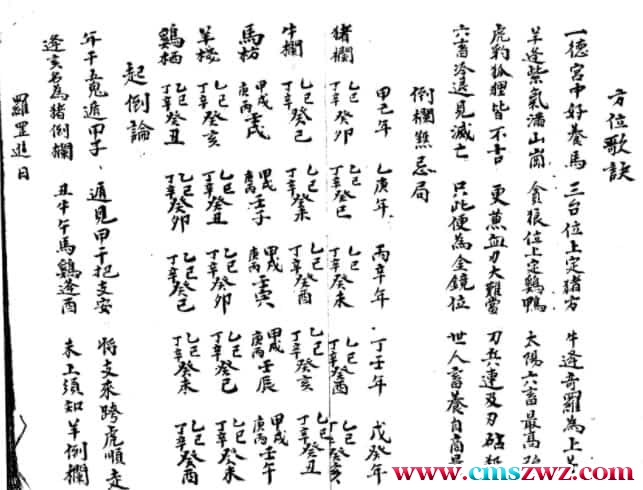 方位歌訣
一德宮中好養馬 三台位上定猪方 牛逢奇羅為上
羊逢紫氣滿山崗 貪狼位上定鷄鴨 太陽六畜最高
虎豹狐狸皆不吉 更蒸血刃大難當 刃兵連及刃砧
六畜冷退見滅亡 只此便為金鏡位 世人畜養自商
倒欄煞忌局
甲己年 乙庚年 丙辛年 丁壬年 戊癸年
猪欄 乙己丁辛癸卯 乙己丁辛癸巳 乙己丁辛癸未 乙己丁辛癸酉 乙己丁辛癸亥
牛欄 乙己丁辛癸巳 乙己丁辛癸未 乙己丁辛癸酉 乙己丁辛癸亥 乙己丁辛癸丑
馬枋 甲戊庚丙壬戌 甲戊庚丙壬子 甲戊庚丙壬寅 甲戊庚丙壬辰 甲戊庚丙壬午
羊棧 乙己丁辛癸亥 乙己丁辛癸丑 乙己丁辛癸卯 乙己丁辛癸巳 乙己丁辛癸未
鷄栖 乙己丁辛癸丑 乙己丁辛癸卯 乙己丁辛癸巳 乙己丁辛癸未 乙己丁辛癸酉
起倒論
年干五鬼遁甲子 遁見甲干把支安 將支來跨虎順走
逢亥名為猪倒欄 丑牛午馬鷄逢酉 未上須知羊倒欄
羅罡進日
www.cmszwz.com